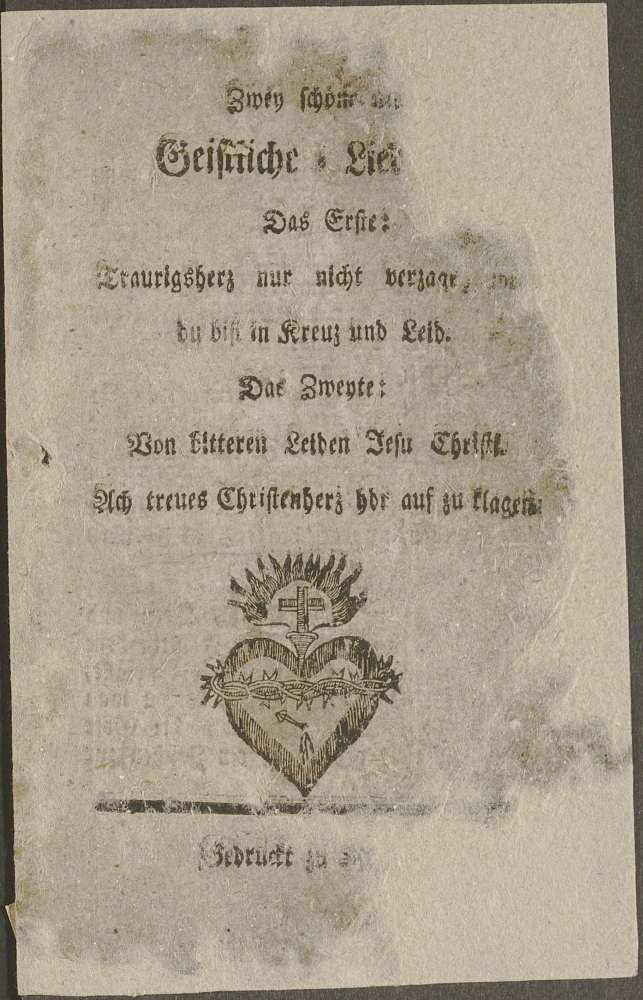 Zwey schöne
Geistliche - Lie
Das Erste:
Traurigsherz nur nicht verzage,
du bist in Kreuz und Leid.
Das Zweyte:
Von bitteren Leiden Jesu Christi.
Ach treues Christenherz hör auf zu klagen
Gedruckt zu